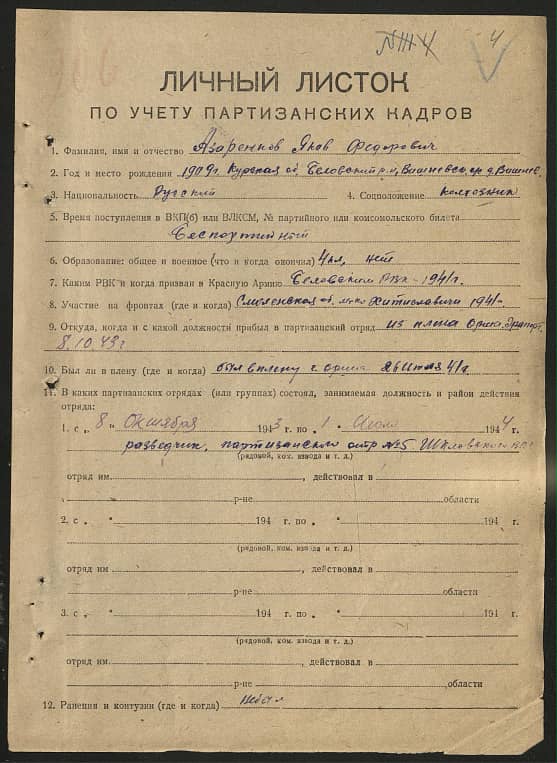 4
ЛИЧНЫЙ ЛИСТОК
ПО УЧЕТУ ПАРТИЗАНСКИХ КАДРОВ
1. Фамилия, имя и отчество Азаренков Яков Федорович
2. Год и место рождения 1909г. Курская об. Беловский р-н,
3. Национальность Русский 4. Соцположение колхозник
5. Время поступления в ВКП(б) или ВЛКСМ, № партийного или комсомольского билета
Беспартийный
6. Образование: общее и военное (что и когда окончил) 4кл, нет
7. Каким РВК и когда призван в Красную Армию Беловским РВК-1941г.
8. Участие на фронтах (где и когда) Смоленская об. 1941-
9. Откуда, когда и с какой должности прибыл в партизанский отряд из плена
8.10.43г
10. Был ли в плену (где и когда) был в плену г. орша 41г.
11. В каких партизанских отрядах (или группах) состоял, занимаемая должность и район действия
отряда:
1. с „ 8 " Октября 1943 г. по „ 1 " Июля 1944 г.
разведчик, партизанского отр №5.
(рядовой, ком. взвода и т. д.)
отряд им. , действовал в
р-не области
2. с „ " 194 г. по „ " 194 г.
(рядовой, ком. взвода и т. д.)
отряд им. , действовал в
р-не области
3. с „ " 194 г. по „ " 194 г.
(рядовой, ком. взвода и т. д.)
отряд им. , действовал в
р-не области
12. Ранения и контузии (где и когда) не был